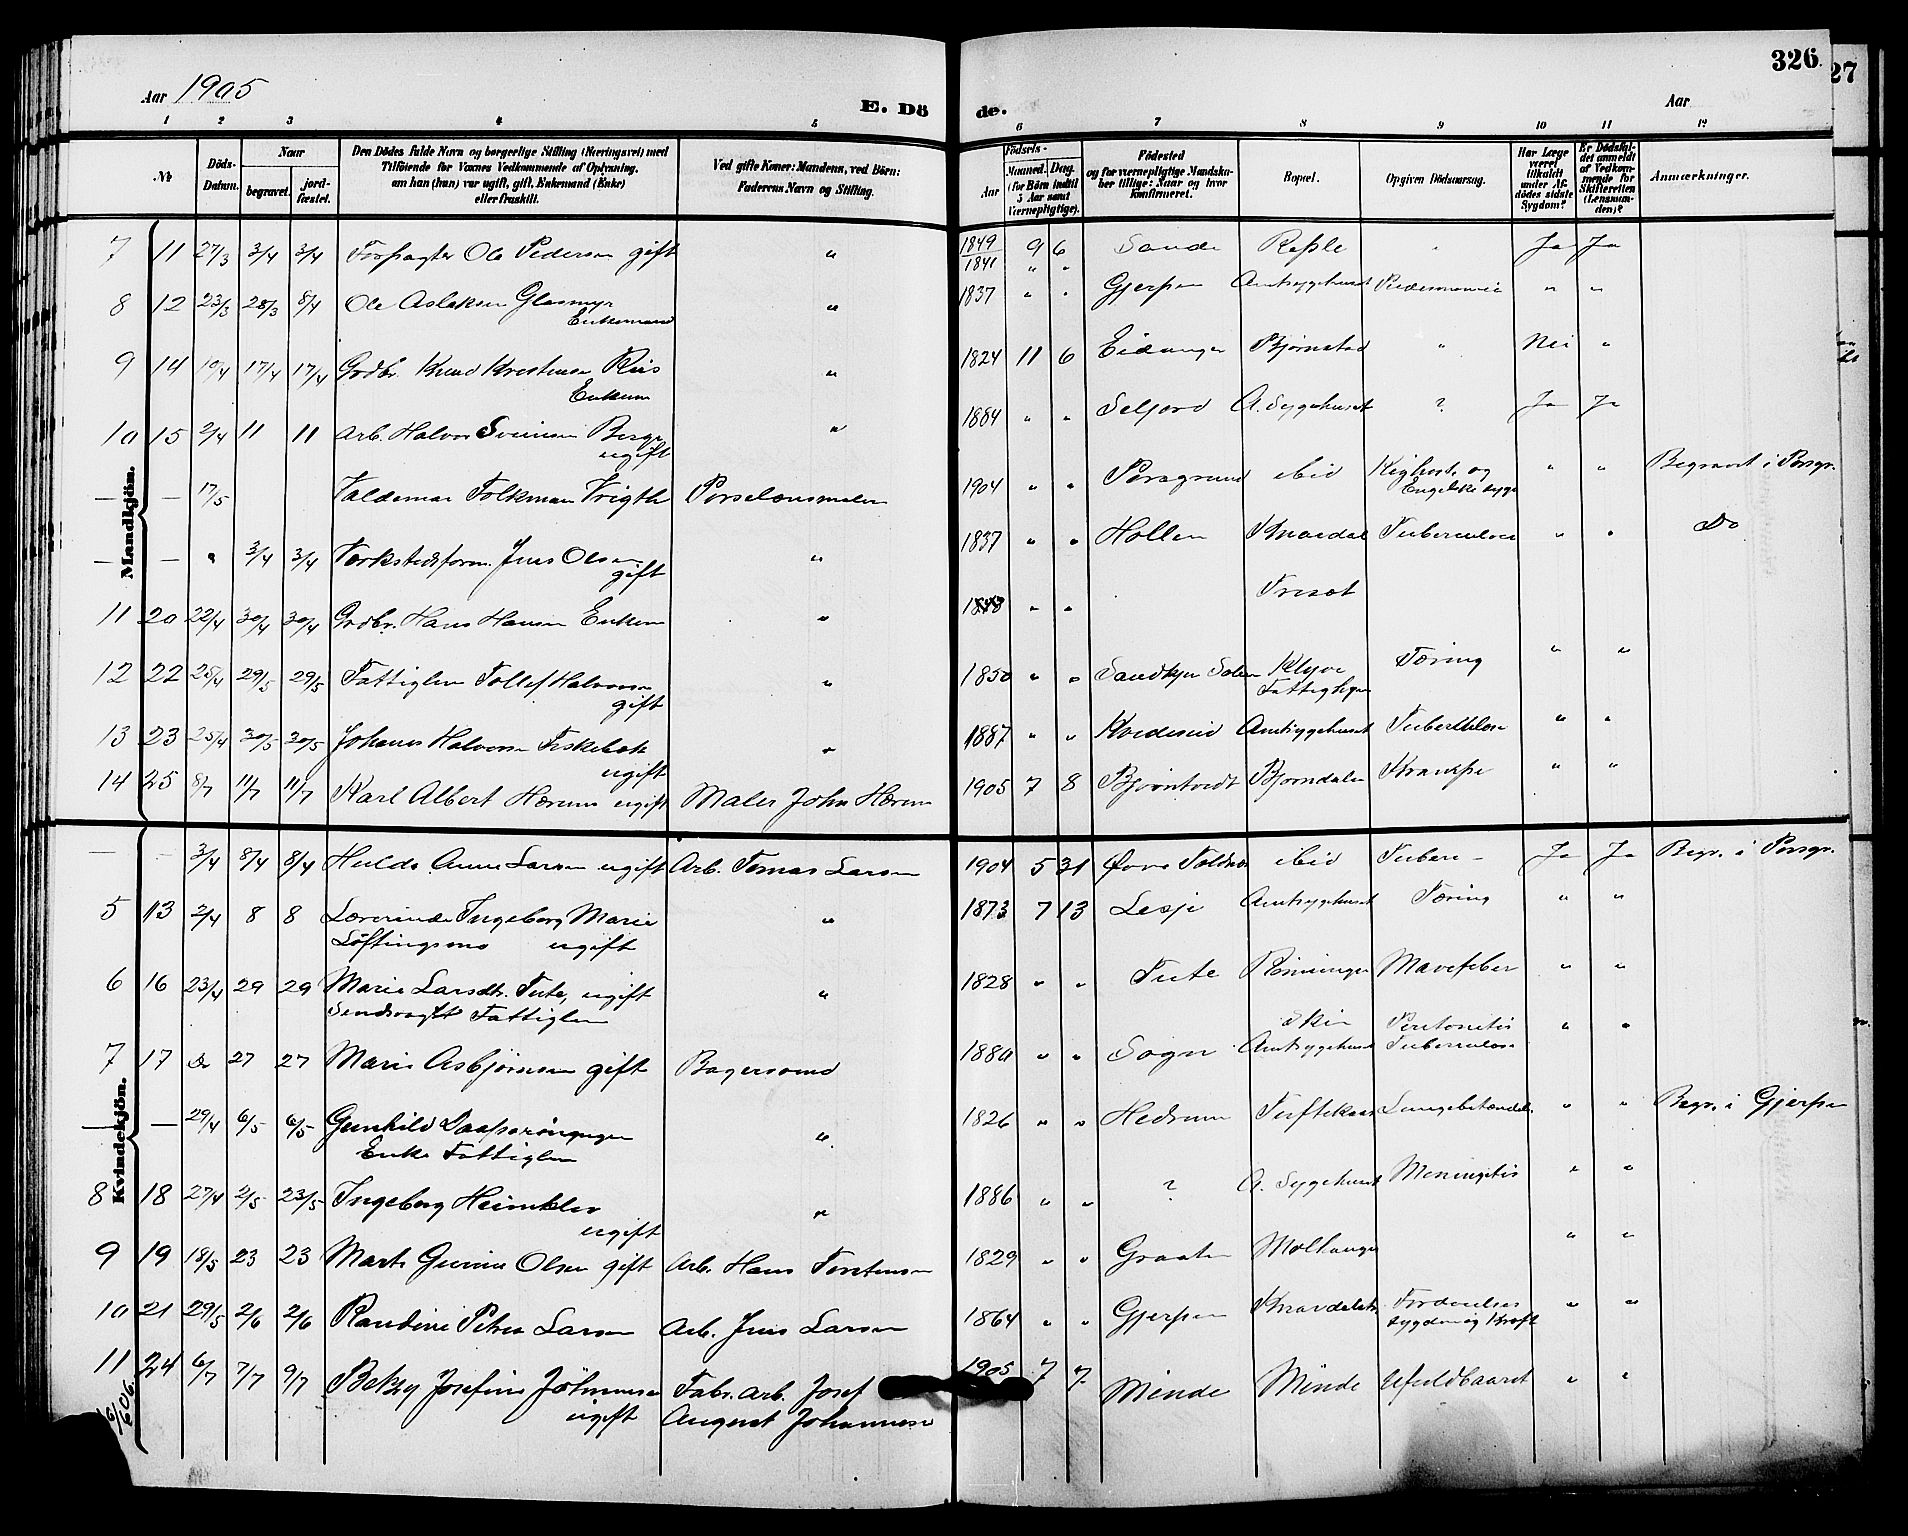 Aar 1905
E. Dö
de.
Aar
326
27
1 2 3 4 5 6 7 8 9 10 11 12
№
Döds-Datum.
Naar
begravet.
jord-fæstet.
Den Dödes fulde Navn og borgerlige Stilling (Næringsvei) med
Tilföiende for Voxnes Vedkommende af Oplysning,
om han (hun) var ugift, gift, Enkemand (Enke)
eller fraskilt.
Ved gifte Koner: Mandens, ved Börn:
Faderens Navn og Stilling.
Födsels-
Aar
Maaned. Dag.
(for Börn indtil
5 Aar samt
Værnepligtige).
Födested
og for værnepligtige Mandska-
ber tillige: Naar og hvor
konfirmeret.
Bopæl.
Opgiven Dödsaarsag.
Har Læge
været
tilkaldt
under Af-
dödes sidste
Sygdom?
Er Dödsfal-
det anmeldt
af Vedkom-
mende for
Skifteretten
(Lensman-
den)?
Anmærkninger.
Mandkjön.
7 11 27/3 3/4 3/4 Forpagter Ole Pedersen gift " 1849 9 6 Sande " Ja Ja
1841 " "
8 12 23/3 28/3 8/4 Ole Aslaksen Glasmyr " 1837 " " Gjerpen Amtsygehuset " "
Enkemand
9 14 10/4 17/4 17/4 Grdbr. Knud Kristensen Riis " 1824 11 6 Eidanger Bjørnstad " Nei "
Enkem
10 15 2/4 11 11 Arb. Halvor Svensen Berge " 1884 " " Seljord A. Sygehuset ? Ja Ja
ugift
— — 17/5 Valdemar Folkman Vrigth Porselænsmaler 1904 " " Porsgrund ibid Kighost. og " " Begravet i Porsgr.
Engelske syge
— — " 3/4 3/4 Verkstedsform. Jens Olsen " 1837 " " Hollen Knardal Tuberculose " " Do
gift
11 20 22/4 30/4 30/4 Grdbr. Hans Hansen Enkem " " "
12 22 25/4 29/5 29/5 Fattiglem Tollef Halvorsen " 1850 " " Klyve Tæring " "
gift Fattighjem
13 23 25/4 30/5 30/5 Johannes Halvorsen Fiskebæk " 1887 " " Kvedeseid Amtsygehuset Tuberkulose " "
ugift
14 25 8/7 11/7 11/7 Karl Albert Hærum ugift Maler John Hærum 1905 7 8 Bjørntvedt Bjorndalen Krampe " "
Kvindekjön.
— — 3/4 8/4 8/4 Hulda Anna Larsen ugift Arb. Tomas Larsen 1904 5 31 Øvre ibid Tuberc – Ja Ja Begr. i Porsgr.
5 13 2/4 8 8 Lærerinde Ingeborg Marie " 1873 7 13 Lesje Amtsygehuset Tæring " "
Löftingsmo ugift
6 16 23/4 29 29 Marie Larsdtr. Tute, ugift " 1828 " " Tute Rönningen Mavefeber " "
Fattiglem
7 17 Do 27 27 Marie Asbjörnsen gift Bagersvend 1880 " " Sogn Skien Peritonitis " "
Amtsygehuset Tuberculose
— — 29/4 6/5 6/5 Gunhild " 1826 " " Hedrum Lungebetændelse " " Begr. i Gjerpen
Enke Fattiglem
8 18 27/4 2/5 23/5 Ingeborg Heimkler " 1886 " " ? A. Sygehuset Meningitis " "
ugift
9 19 18/5 23 23 Marte Gurine Olsen gift Arb. Hans Torstensen 1829 " " Graaten Moltangen " "
10 21 29/5 2/6 2/6 Randine Petrea Larsen Arb. Jens Larsen 1864 " " Gjerpen Knardalstr. Fordøielses " "
sygdom og Kræft
11 24 6/7 7/7 9/7 Betzy Josefine Jöhannesen Fabr. arb. Josef 1905 7 7 Minde Minde Ufuldbaaret " "
ugift August Johannesen